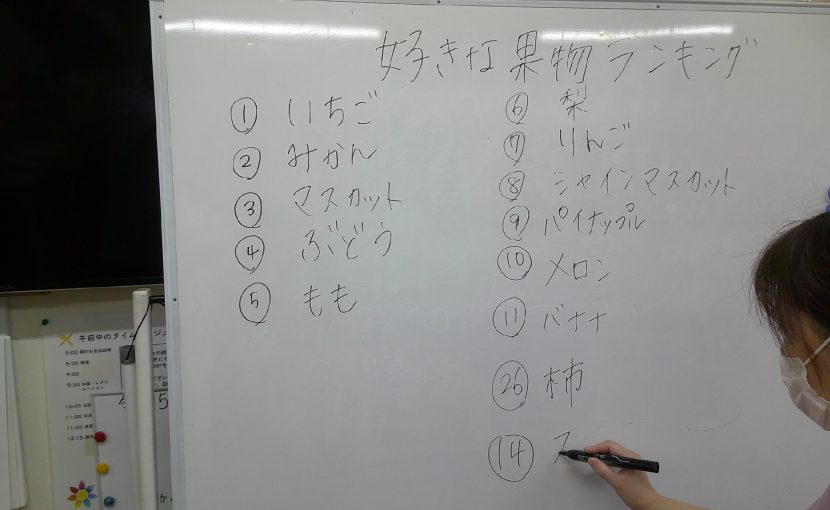 好きな果物ランキング
① いちご
② みかん
③ マスカット
④ ぶどう
⑤ もも
⑥ 梨
⑦ りんご
⑧ シャインマスカット
⑨ パイナップル
⑩ メロン
⑪ バナナ
㉖ 柿
⑭
午前中のタイム
8:30
9:00
9:30
10:00
11:00
11:30
12:15